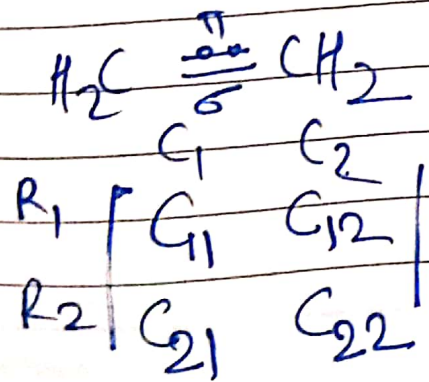 π
H₂C = CH₂
σ
C₁ C₂
R₁ C₁₁ C₁₂
R₂ C₂₁ C₂₂